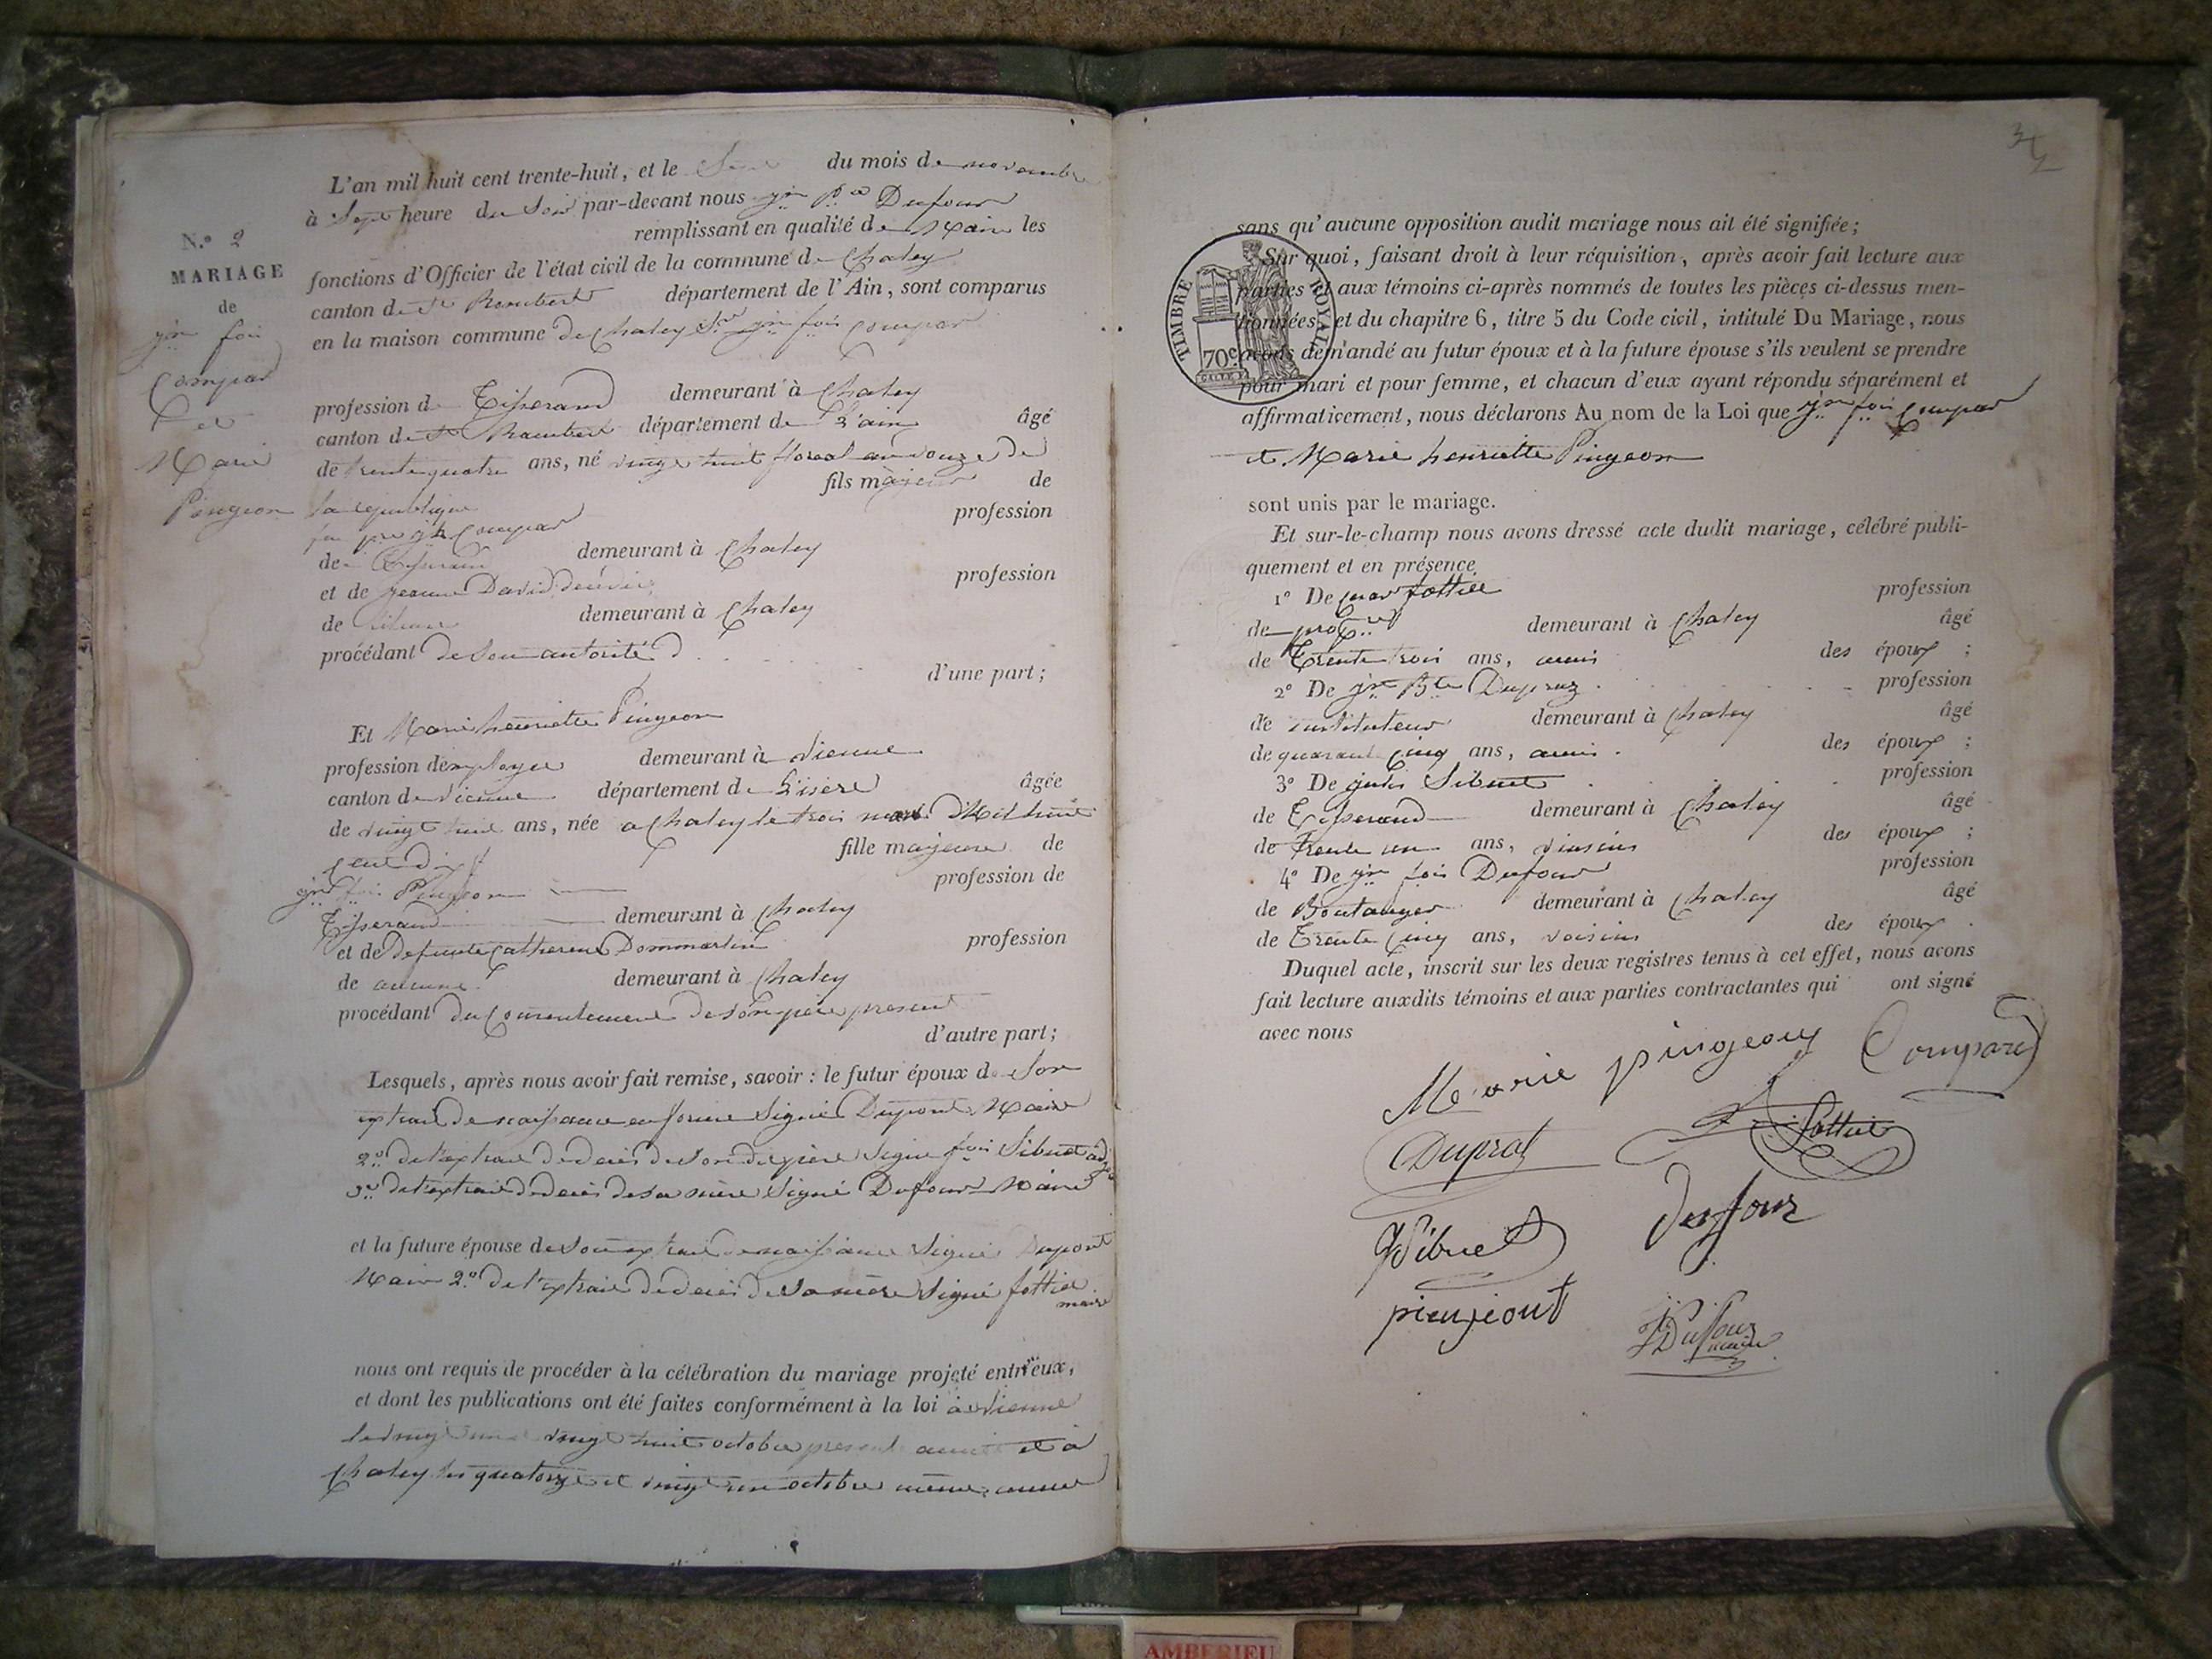 L'an mil huit cent trente-huit, et le du mois de novembre
à Sept heure du Soir par-devant nous jn Bte Dufour
remplissant en qualité de Maire les
N.º 2
MARIAGE
de
jn fois
Compar
et
Marie
Pingeon
fonctions d'Officier de l'état civil de la commune de Chaley
canton de St Rambert département de l'Ain, sont comparus
en la maison commune de Chaley Sr jn fois Compar
profession de Tisserand demeurant à Chaley
canton de St Rambert département de L'ain âgé
de trente quatre ans, né vingt huit floreal an douze de
la republique fils majeur de
profession
de Tisserand demeurant à Chaley
et de jeanne David profession
de demeurant à Chaley
procédant de Son autorité
d'une part;
Et Marie henriette Pingeon
profession demployee demeurant à Vienne
canton de Vienne département de L'isère âgée
de vingt huit ans, née a Chaley le trois mars Mil huit
Cent dix fille majeure de
jn fois Pingeon profession de
Tisserand demeurant à Chaley
et de Defunte Catherine Dommartin profession
de aucune demeurant à Chaley
procédant du Consentement de Son pere present
d'autre part;
Lesquels, après nous avoir fait remise, savoir : le futur époux de Son
extrait de naissance en forme Signé Dupont Maire
2º de l'extrait de deces de Son père Signé fois Sibuet adj
3º de l'extrait de deces de Sa mère Signé Dufour Maire
et la future épouse de Son extrait de naissance Signé Dupont
Maire 2º de l'extrait de deces de Sa mère Signé fottier
maire
nous ont requis de procéder à la célébration du mariage projeté entr'eux,
et dont les publications ont été faites conformément à la loi à Vienne
vingt huit octobre present et à
Chaley les quatorze et vingt un octobre même année
sans qu'aucune opposition audit mariage nous ait été signifiée;
Sur quoi, faisant droit à leur réquisition, après avoir fait lecture aux
parties et aux témoins ci-après nommés de toutes les pièces ci-dessus men-
tionnées, et du chapitre 6, titre 5 du Code civil, intitulé Du Mariage, nous
avons demandé au futur époux et à la future épouse s'ils veulent se prendre
pour mari et pour femme, et chacun d'eux ayant répondu séparément et
affirmativement, nous déclarons Au nom de la Loi que jn fois Compar
et Marie henriette Pingeon
TIMBRE ROYAL
70c
sont unis par le mariage.
Et sur-le-champ nous avons dressé acte dudit mariage, célébré publi-
quement et en présence
1º De fottier profession
de demeurant à Chaley âgé
de Trente trois ans, amis des époux ;
2º De jn Bte Dupraz profession
de instituteur demeurant à Chaley âgé
de quarante Cinq ans, amis des époux ;
3º De Sibuet profession
de Tisserand demeurant à Chaley âgé
de Trente un ans, voisins des époux ;
4º De jn fois Dufour profession
de Boulanger demeurant à Chaley âgé
de Trente Cinq ans, voisins des époux .
Duquel acte, inscrit sur les deux registres tenus à cet effet, nous avons
fait lecture auxdits témoins et aux parties contractantes qui ont signé
avec nous
Marie pingeon Compard
Duprat fottier
Sibuet dufour
piengeont
Dufour
maire
AMBERIEU